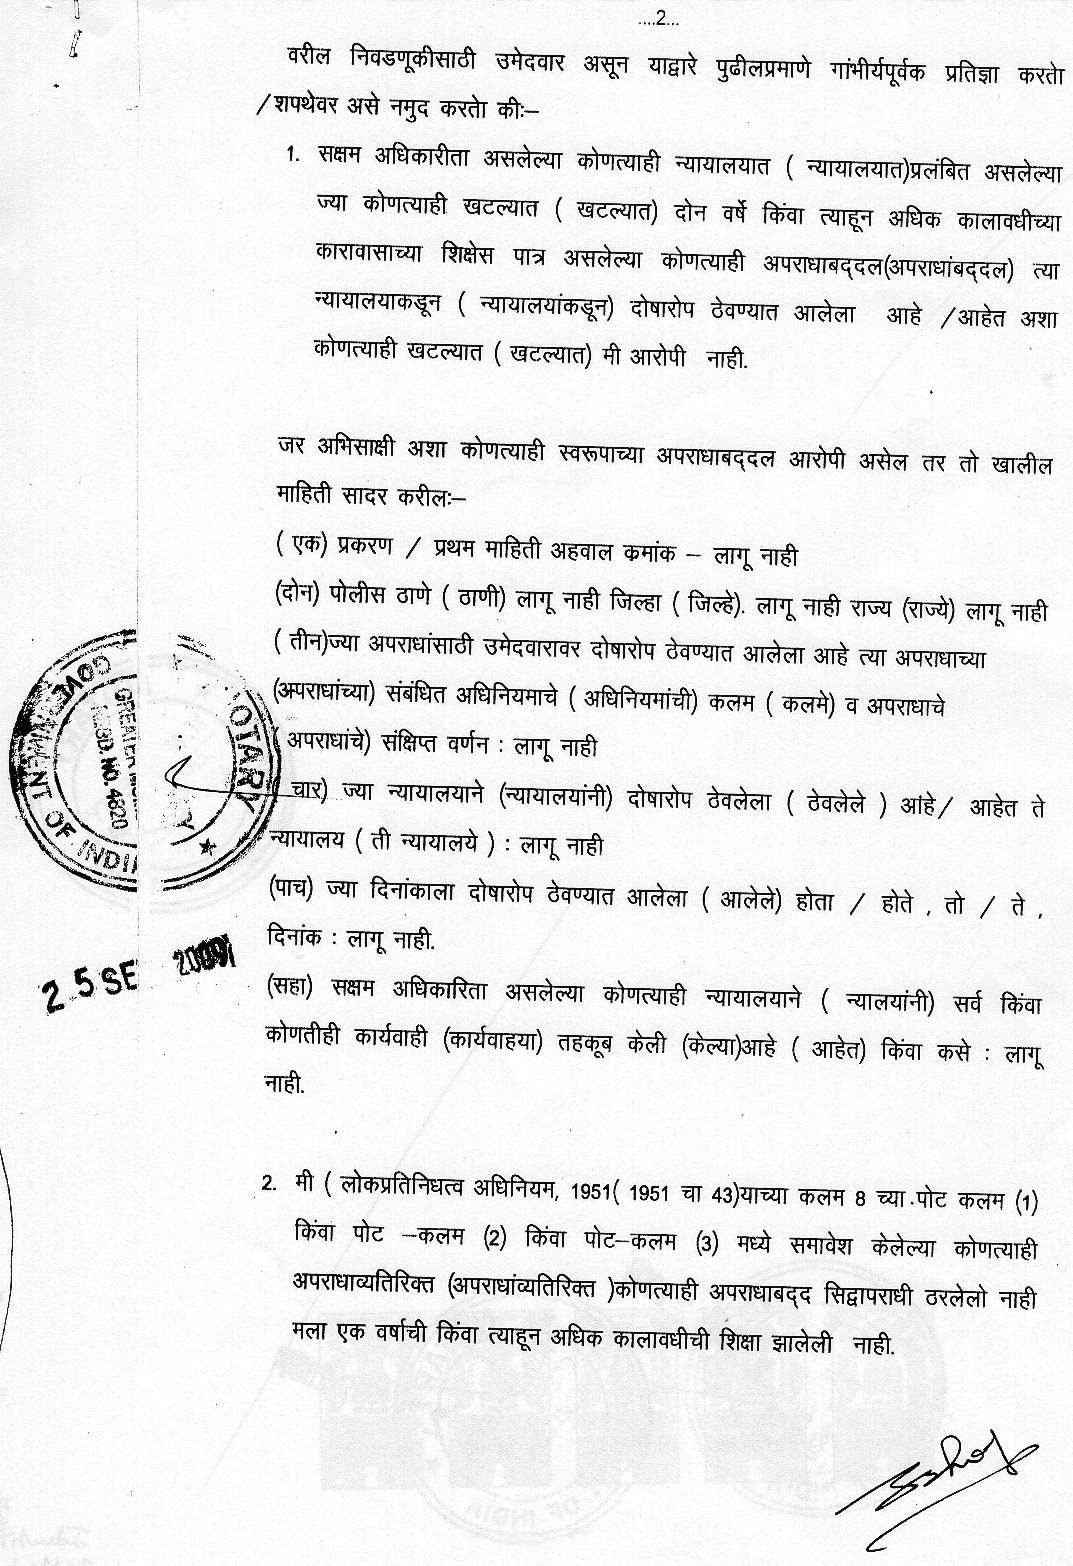 ....2...
वरील निवडणूकीसाठी उमेदवार असून याद्वारे पुढीलप्रमाणे गांभीर्यपूर्वक प्रतिज्ञा करतो
/शपथेवर असे नमुद करतो की:–
1. सक्षम अधिकारीता असलेल्या कोणत्याही न्यायालयात ( न्यायालयात)प्रलंबित असलेल्या
ज्या कोणत्याही खटल्यात ( खटल्यात) दोन वर्षे किंवा त्याहून अधिक कालावधीच्या
कारावासाच्या शिक्षेस पात्र असलेल्या कोणत्याही अपराधाबद्दल(अपराधांबद्दल) त्या
न्यायालयाकडून ( न्यायालयांकडून) दोषारोप ठेवण्यात आलेला आहे /आहेत अशा
कोणत्याही खटल्यात ( खटल्यात) मी आरोपी नाही.
जर अभिसाक्षी अशा कोणत्याही स्वरूपाच्या अपराधाबद्दल आरोपी असेल तर तो खालील
माहिती सादर करील:–
( एक) प्रकरण / प्रथम माहिती अहवाल कमांक – लागू नाही
(दोन) पोलीस ठाणे ( ठाणी) लागू नाही जिल्हा ( जिल्हे). लागू नाही राज्य (राज्ये) लागू नाही
( तीन)ज्या अपराधांसाठी उमेदवारावर दोषारोप ठेवण्यात आलेला आहे त्या अपराधाच्या
(अपराधांच्या) संबंधित अधिनियमाचे ( अधिनियमांची) कलम ( कलमे) व अपराधाचे
( अपराधांचे) संक्षिप्त वर्णन : लागू नाही
( चार) ज्या न्यायालयाने (न्यायालयांनी) दोषारोप ठेवलेला ( ठेवलेले ) आंहे/ आहेत ते
न्यायालय ( ती न्यायालये ) : लागू नाही
(पाच) ज्या दिनांकाला दोषारोप ठेवण्यात आलेला ( आलेले) होता / होते , तो / ते ,
दिनांक : लागू नाही.
(सहा) सक्षम अधिकारिता असलेल्या कोणत्याही न्यायालयाने ( न्यालयांनी) सर्व किंवा
कोणतीही कार्यवाही (कार्यवाहया) तहकूब केली (केल्या)आहे ( आहेत) किंवा कसे : लागू
नाही.
2. मी ( लोकप्रतिनिधत्व अधिनियम, 1951( 1951 चा 43)याच्या कलम 8 च्या पोट कलम (1)
किंवा पोट –कलम (2) किंवा पोट–कलम (3) मध्ये समावेश केलेल्या कोणत्याही
अपराधाव्यतिरिक्त (अपराधांव्यतिरिक्त )कोणत्याही अपराधाबद्द सिद्वापराधी ठरलेलो नाही
मला एक वर्षाची किंवा त्याहून अधिक कालावधीची शिक्षा झालेली नाही.
NOTARY
GOVERNMENT OF INDIA
GREATER
REGD. NO. 4820
25 SE 2009